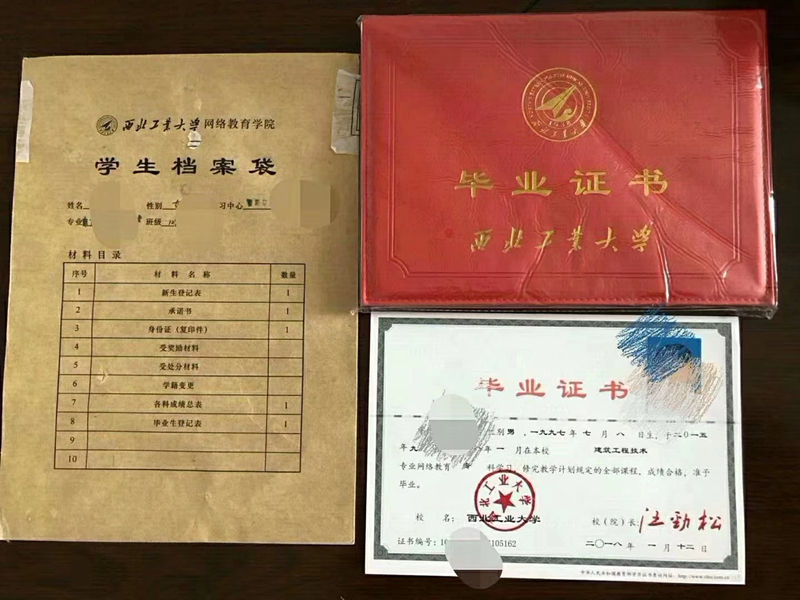 西北工业大学网络教育学院
学生档案袋
姓名 性别 习中心
专业 班级
材料目录
序号 材料名称 数量
1 新生登记表 1
2 承诺书 1
3 身份证（复印件） 1
4 受奖励材料
5 受处分材料
6 学籍变更
7 各科成绩总表 1
8 毕业生登记表 1
9
10
1938
毕业证书
西北工业大学
毕业证书
别男，一九九七年七月八日生，于二〇一五
年九 年一月在本校 建筑工程技术
专业网络教育 科学习，修完教学计划规定的全部课程，成绩合格，准予
毕业。
西北工业大学
校名：西北工业大学 校（院）长：汪劲松
证书编号：10 105162 二〇一八年一月十二日